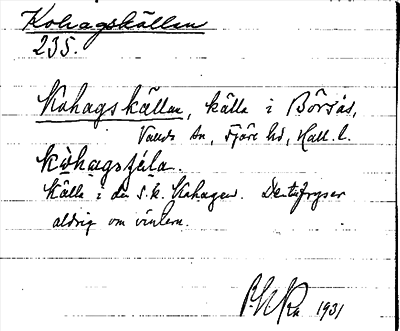 Kohagskällan
235.
Kohagskällan, källa i Börsås,
Valda sn, Fjäre hd, Hall. l.
kòhagsjäla.
Källa i den s. k. Kohagen. Den tillfryser
aldrig om vintern.
1931